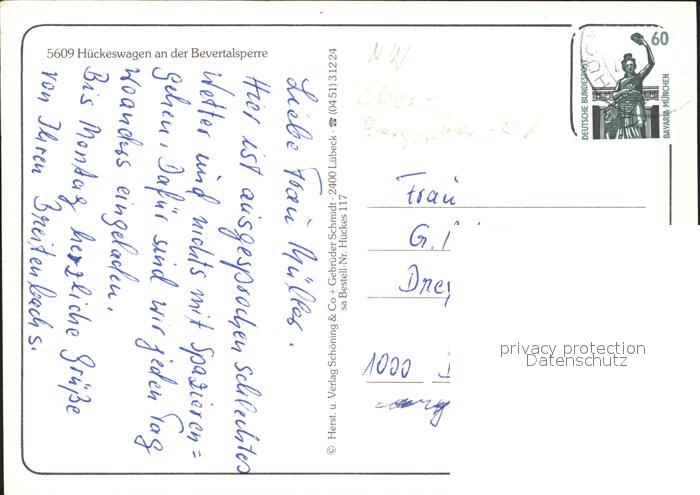 5609 Hückeswagen an der Bevertalsperre
Liebe Frau Müller.
Hier ist ausgesprochen schlechtes
Wetter und nichts mit Spazieren=
gehen. Dafür sind wir jeden Tag
woanders eingeladen.
Bis Montag herzliche Grüße
von Ihren Breitenbachs.
© Herst. u. Verlag Schöning & Co + Gebrüder Schmidt · 2400 Lübeck · ☎ (04 51) 3 12 24
sa Bestell-Nr. Hückes 117
NW
Ober-
60
DEUTSCHE BUNDESPOST
BAVARIA MÜNCHEN
Frau
G.
1000
privacy protection
Datenschutz